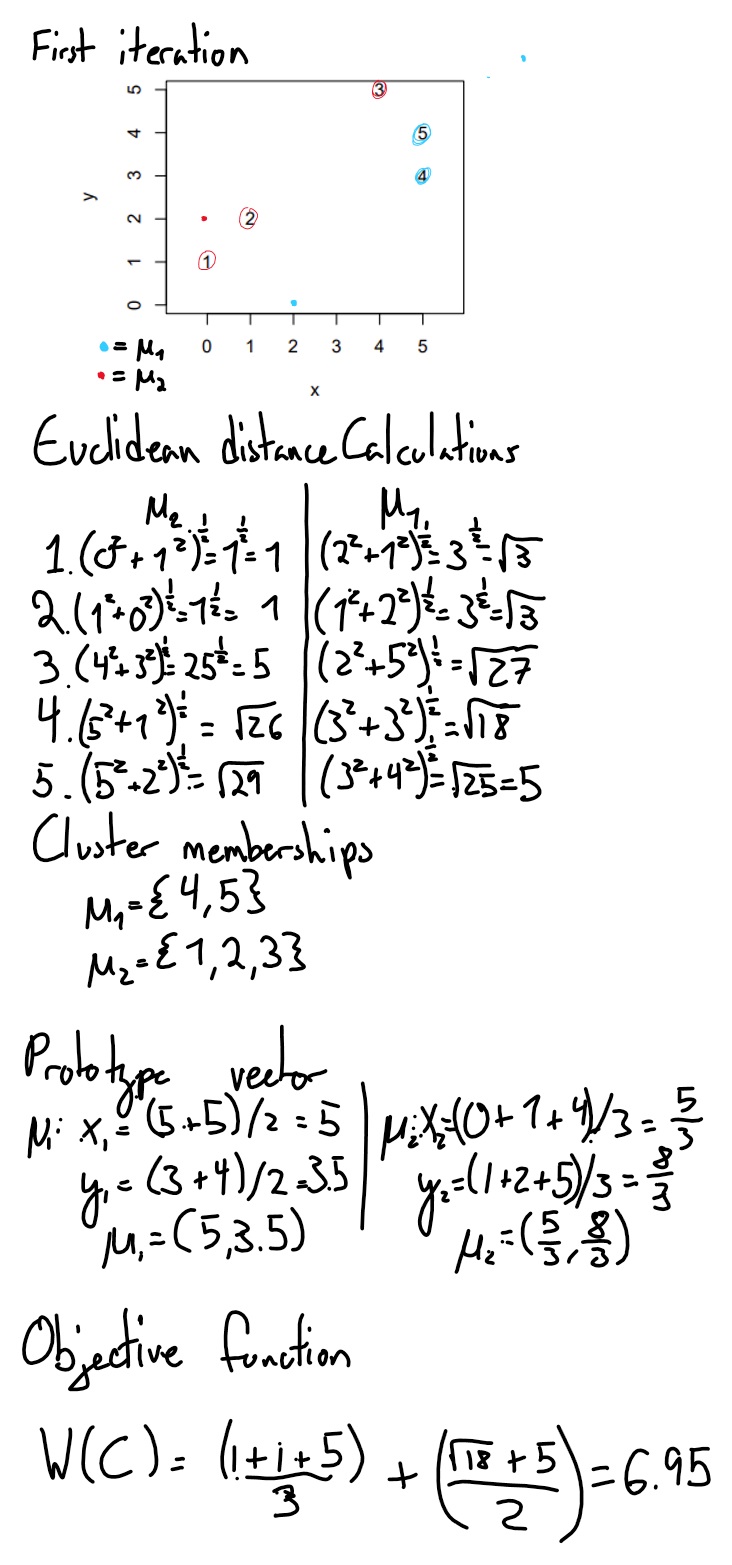 First iteration
5
4
3
2
1
0
y
3
5
4
2
1
0 1 2 3 4 5
x
• = μ₁
• = μ₂
Euclidean distance Calculations
μ₂ | μ₁
1. (0² + 1²)^½ = 1^½ = 1 | (2² + 1²)^½ = 3^½ = √3
2. (1² + 0²)^½ = 1^½ = 1 | (1² + 2²)^½ = 3^½ = √3
3. (4² + 3²)^½ = 25^½ = 5 | (2² + 5²)^½ = √27
4. (5² + 1²)^½ = √26 | (3² + 3²)^½ = √18
5. (5² + 2²)^½ = √29 | (3² + 4²)^½ = √25 = 5
Cluster memberships
μ₁ = {4, 5}
μ₂ = {1, 2, 3}
Prototype vector
μ₁: x₁ = (5 + 5)/2 = 5 | μ₂: x₂ = (0 + 1 + 4)/3 = 5/3
y₁ = (3 + 4)/2 = 3.5 | y₂ = (1 + 2 + 5)/3 = 8/3
μ₁ = (5, 3.5) | μ₂ = (5/3, 8/3)
Objective function
W(C) = (1 + 1 + 5)/3 + ((√18 + 5)/2) = 6.95